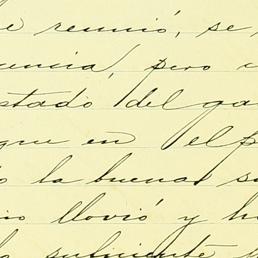 e reunió, se,
uencia, pero
stado del ga
que en el p
o la buena s
io llovió y h
lo suficiente